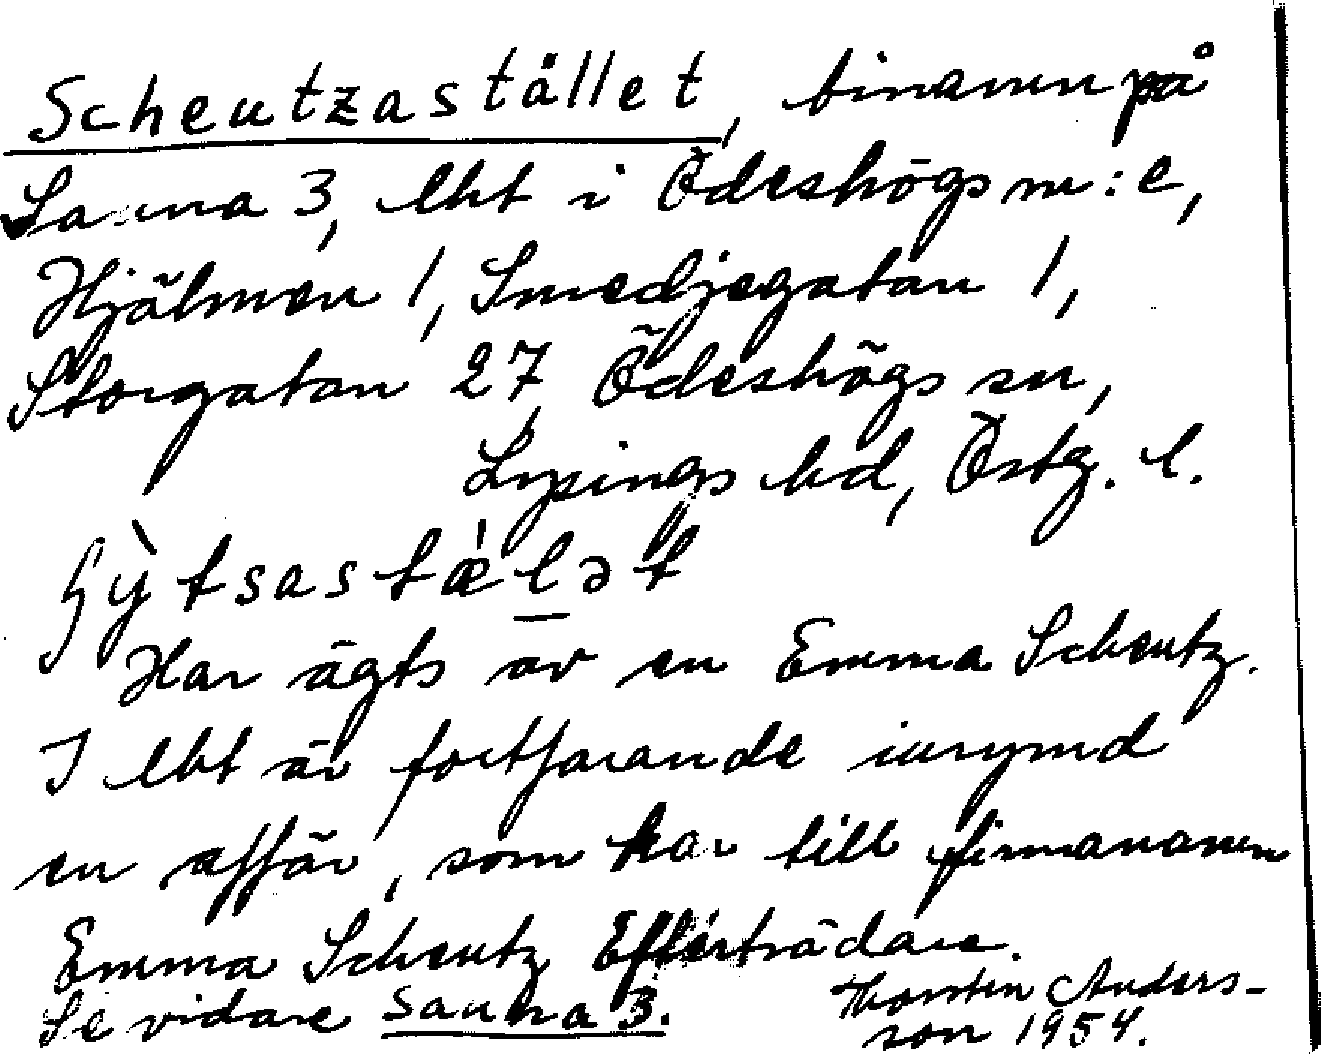 Scheutzastället, binamn på
Sanna 3, lht i Ödeshögs m:e,
Hjälmen 1, Smedjegatan 1,
Storgatan 27, Ödeshögs sn,
Lysings hd, Östg. l.
ʃy̍tsastæ̍lət
Har ägts av en Emma Scheutz.
I lht är fortfarande inrymd
en affär, som har till firmanamn
Emma Scheutz Efterträdare.
Se vidare Sanna 3.
Thorsten Anders-
son 1954.